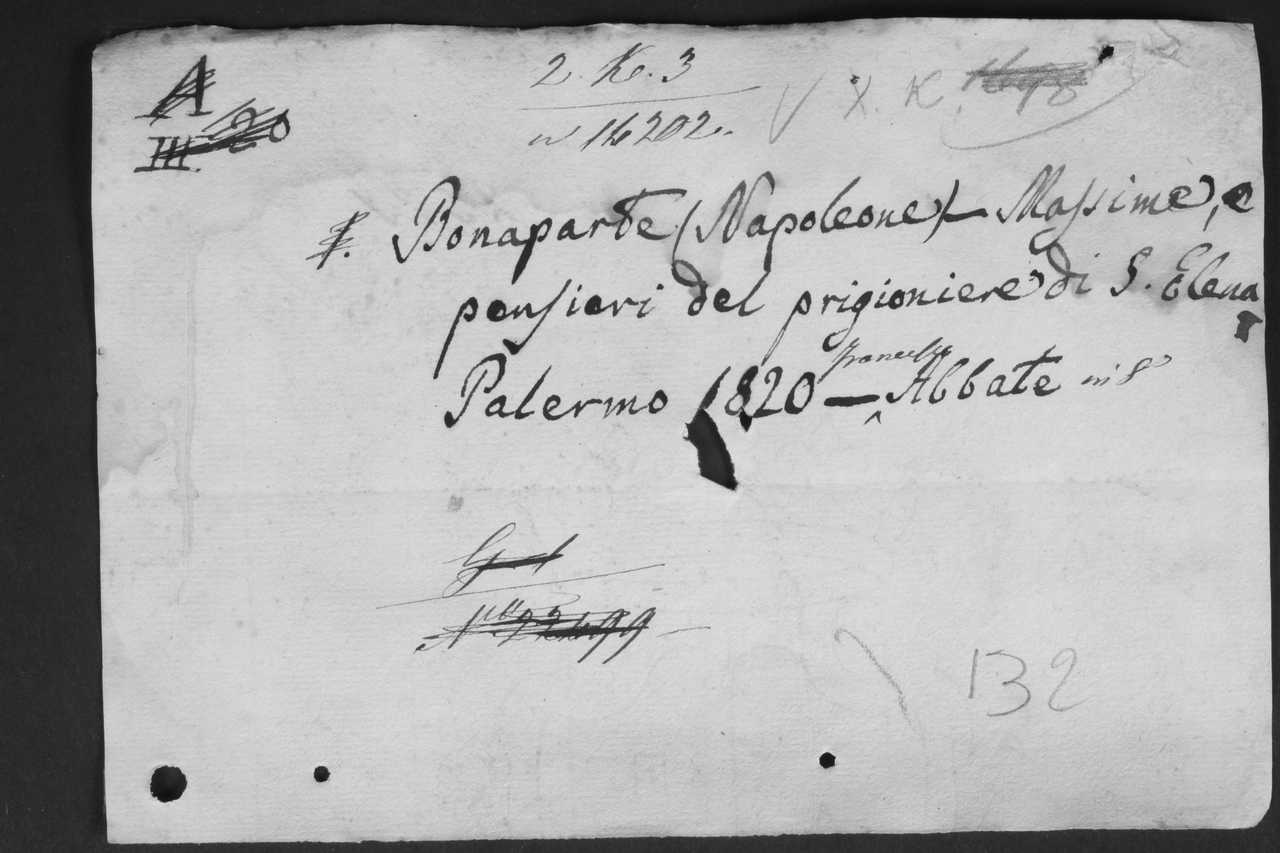 A
III. 20
2. K. 3
n 14202.
X. K.
Bonaparte (Napoleone) – Massime, e
pensieri del prigioniere di S. Elena
Palermo 1820 – Francesco Abbate in 8°
N.° 22499
132